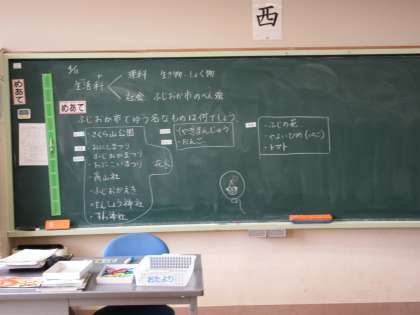 西
4/
生活科
理科 生き物・しょく物
社会 ふじおか市のべん強
めあて
めあて
ふじおか市でゆう名なものは何でしょう
・さくら山公園
・おにしまつり
ふじおかまつり
・おにこいまつり
花火
・高山社
・ふじおかえき
神社
神社
・やきまんじゅう
・だんご
・ふじの花
・やよいひめ(いちご)
・トマト
おたより